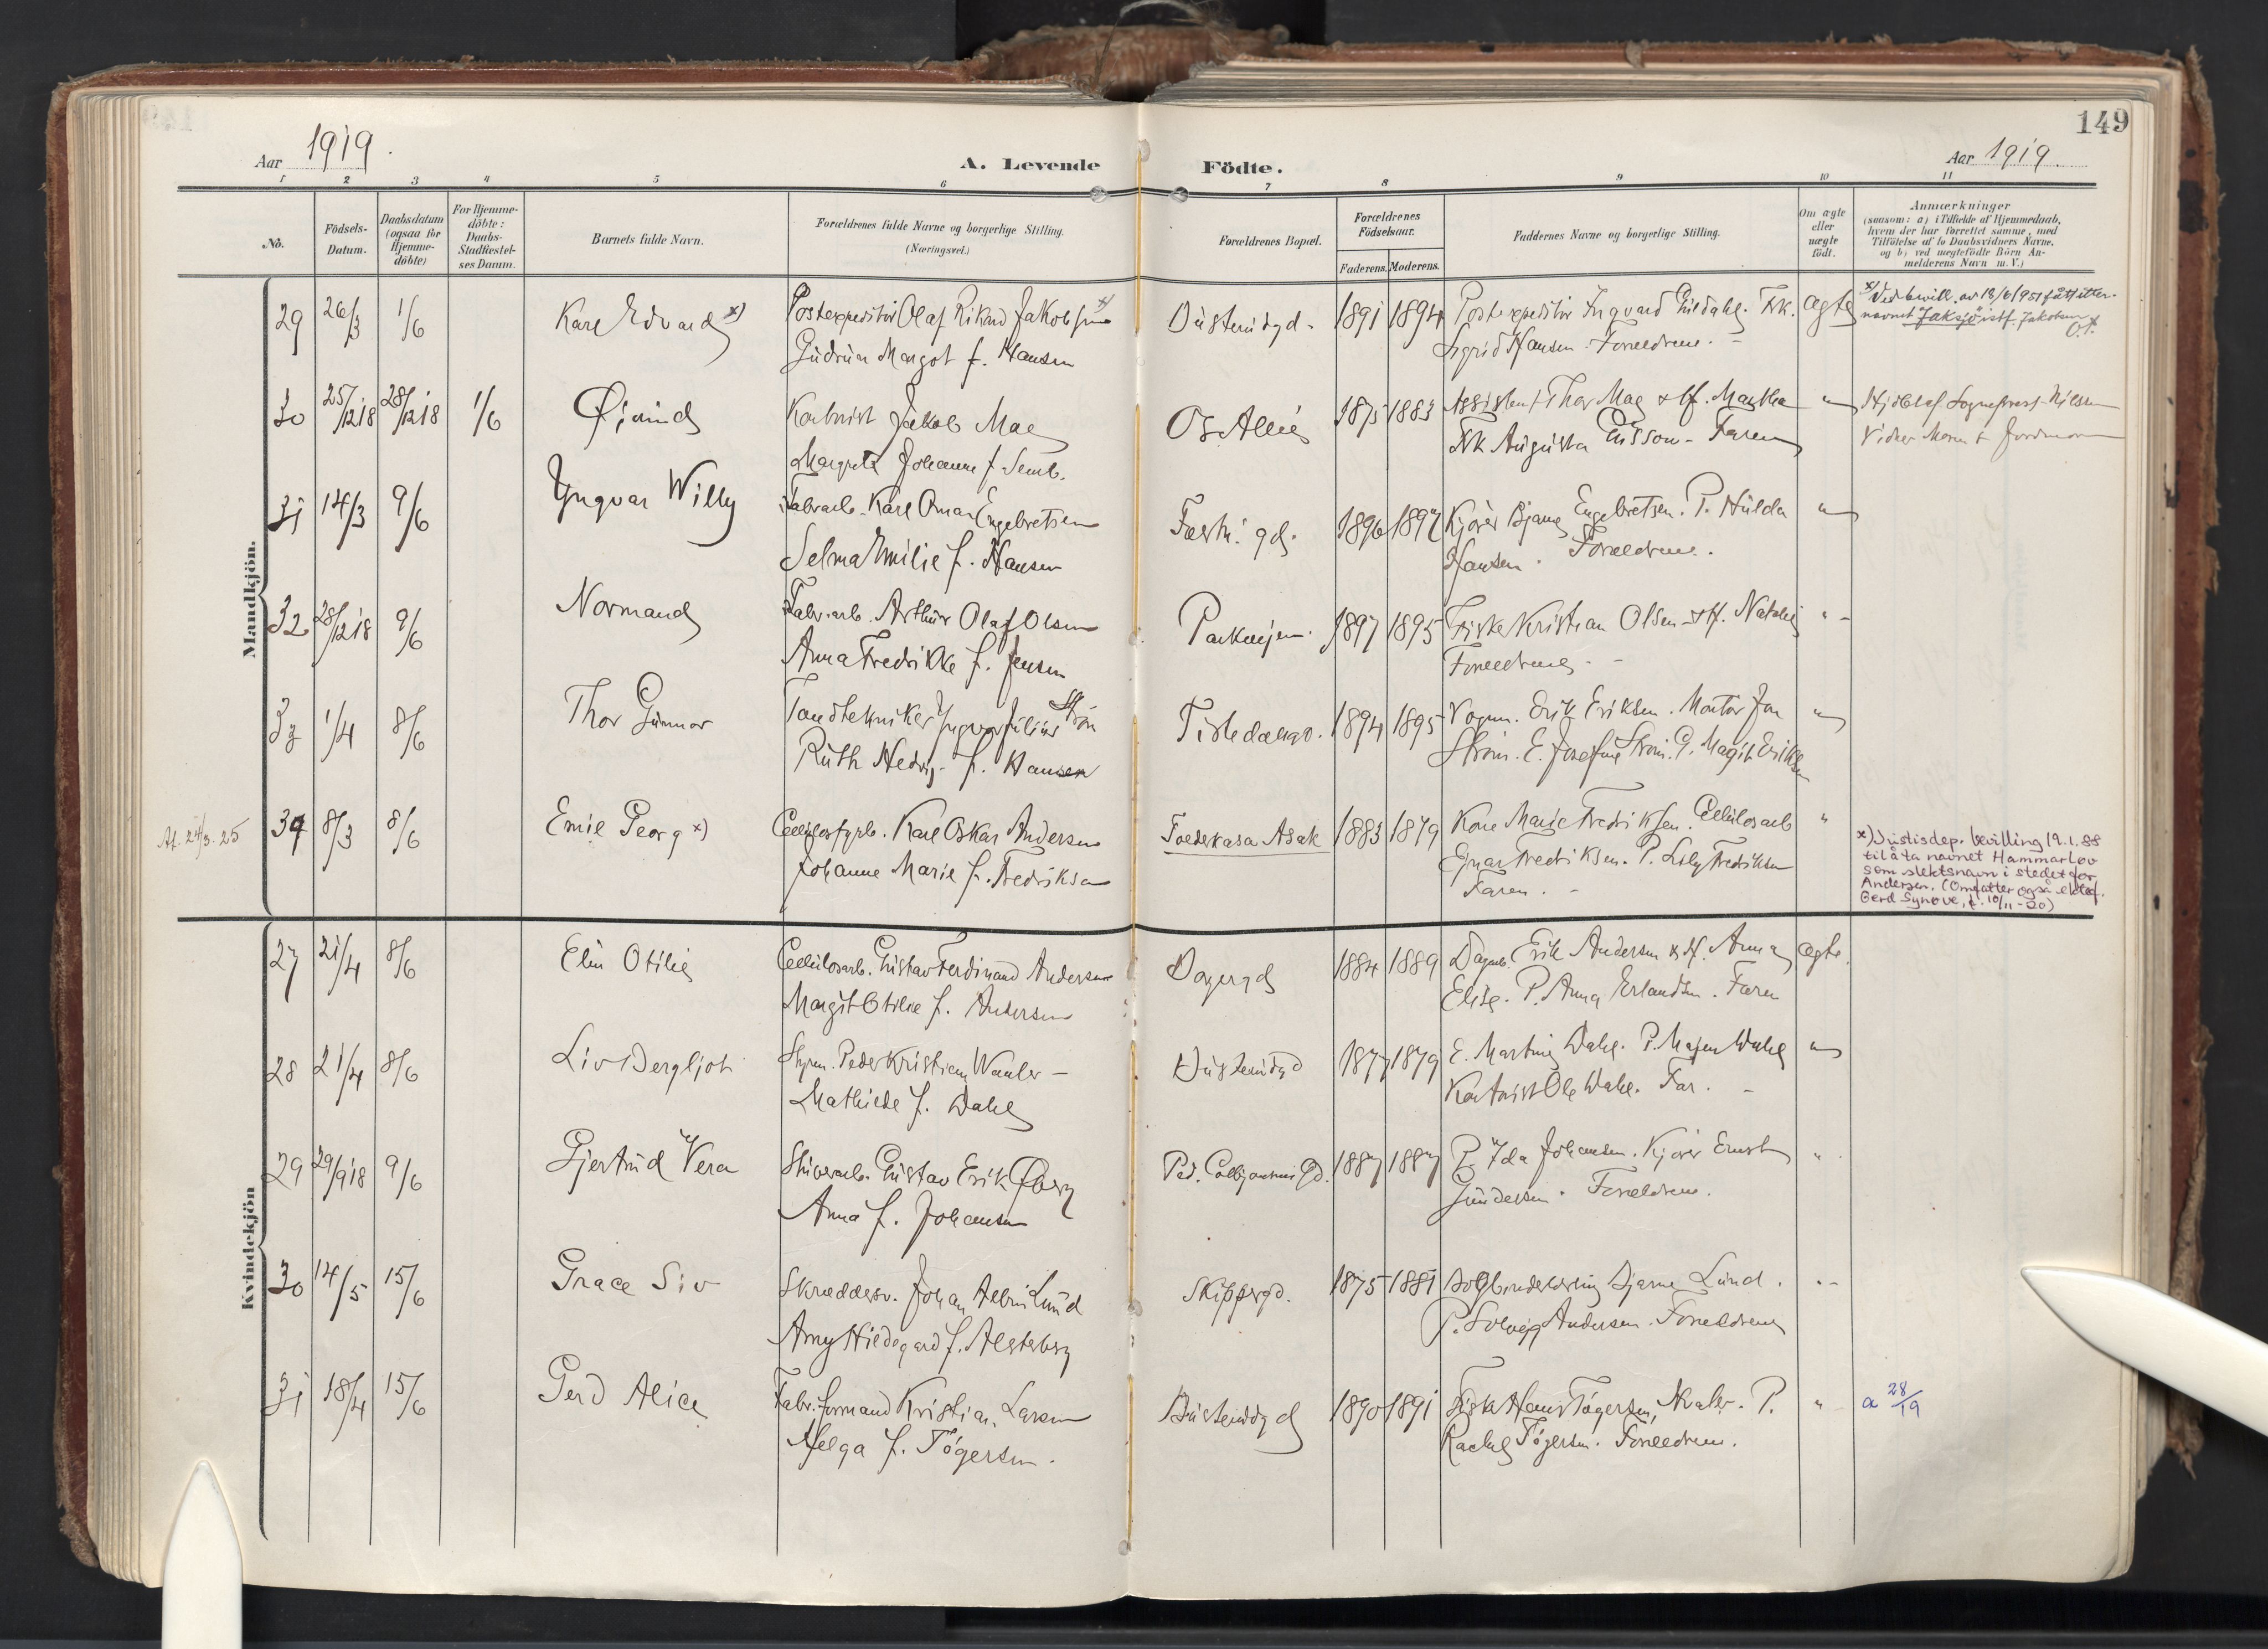 149
Aar 1919.
A. Levende Födte.
Aar 1919.
1 2 3 4 5 6 7 8 9 10 11
No.
Födsels-
Datum.
Daabsdatum
(ogsaa för
Hjemme-
döbte)
For Hjemme-
döbte:
Daabs-
Stadfæstel-
ses Datum.
Barnets fulde Navn.
Forældrenes fulde Navne og borgerlige Stilling.
(Næringsvei.)
Forældrenes Bopæl.
Forældrenes
Födselsaar.
Faderens. Moderens.
Faddernes Navne og borgerlige Stilling.
Om ægte
eller
uægte
födt.
Anmærkninger
(saasom: a) i Tilfælde af Hjemmedaab,
hvem der har forrettet samme, med
Tilföielse af to Daabsvidners Navne,
og b) ved uægtefödte Börn An-
melderens Navn m. V.)
Mandkjön.
29 26/3 1/6 Karl Edvard x) Postexpeditör Olaf Rikard Jakobsen x)
Gudrun Margot f. Hansen
1891 1894 Postexpeditör Ingvard Frk.
Sigrid Hansen. Forældrene. -
ægte
x) Ved bevill. av 18/6 1951 fått etter-
navnet "Jaksjö" istf. Jakobsen
30 25/12 18 28/12 18 1/6 Øivind Kontorist Jakob Mae
Margrete Johanne f. Semb.
Os Allé 1875 1883 Assistent Thor Mae & Hf. Martha
Frk Augusta - Faren
" Hjdbt af Sogneprest Nilsen
Vidner Moren & Jordmoren
31 14/3 9/6 Yngvar Willy Fabrarb. Karl Omar Engebretsen
Selma Emilie f. Hansen
1896 1897 Kjörer Bjarne Engebretsen. P. Hulda
Hansen. Forældrene.
"
32 28/12 18 9/6 Normand Fabr.arb. Arthur Olaf Olsen
Anna Fredrikke f. Jensen
Parkveien. 1897 1895 Fisker Kristian Olsen & Hf. Natalie
Forældrene. -
" -
33 1/4 8/6 Thor Gunnar Tandtekniker Ingvar Julius Ström
Ruth Hedvig f. Hansen
Tistedalsgd. 1894 1895 Vognm. Erik Eriksen. Montör Jon
Ström. E. Josefine Ström. P. Magit Eriksen
"
At. 24/3. 25
34 8/3 8/6 Emil Georg x) Cellulosefgrb. Karl Oskar Andersen
Johanne Marie f. Fredriksen
Asak 1883 1879 Kone Marie Fredriksen. Cellulosearb
Fredriksen. P. Lily Fredriksen
Faren. -
"
x) Justisdep. bevilling 19.1.88
til å ta navnet Hammarlov
som slektsnavn i stedet for
Andersen. (Omfatter også ektef.
Gerd Synøve, f. 10/11-20)
Kvindekjön
27 21/4 8/6 Elin Otilie Cellulosearb. Gustav Ferdinand Andersen
Margit Otilie f. Andersen
1884 1889 Dagarb. Erik Andersen & Hf. Anna
Elise. P. Anna Erlandsen. Faren
ægte.
28 21/4 8/6 Liv Bergljot Styrm. Peder Kristian Waaler -
Mathilde f. Dahl
1877 1879 E. Martine Dahl. P. Dahl
Kontorist Ole Dahl. Far. -
"
29 29/9 18 9/6 Gjertrud Vera Stuverarb. Gustav Erik Øberg
Anna f. Johansen
Ped. Colbjørnsens Gd. 1887 1887 P. Ida Johansen. Kjörer Ernst
Gundersen. Forældrene.
"
30 14/5 15/6 Grace Siv Skræddersv. Johan Albin Lund
Amy Hildegard f. Alsterberg
Skippergd. 1875 1881 Bogbinderlærling Bjarne Lund.
P. Solveig Andersen. Forældrene
" -
31 18/4 15/6 Gerd Alice Fabr.formand Kristian Larsen
Helga f. Tögersen.
1890 1891 Fisker Hans Tögersen, Hvaler. P.
Rachel Tögersen. Forældrene.
"
a 28/19